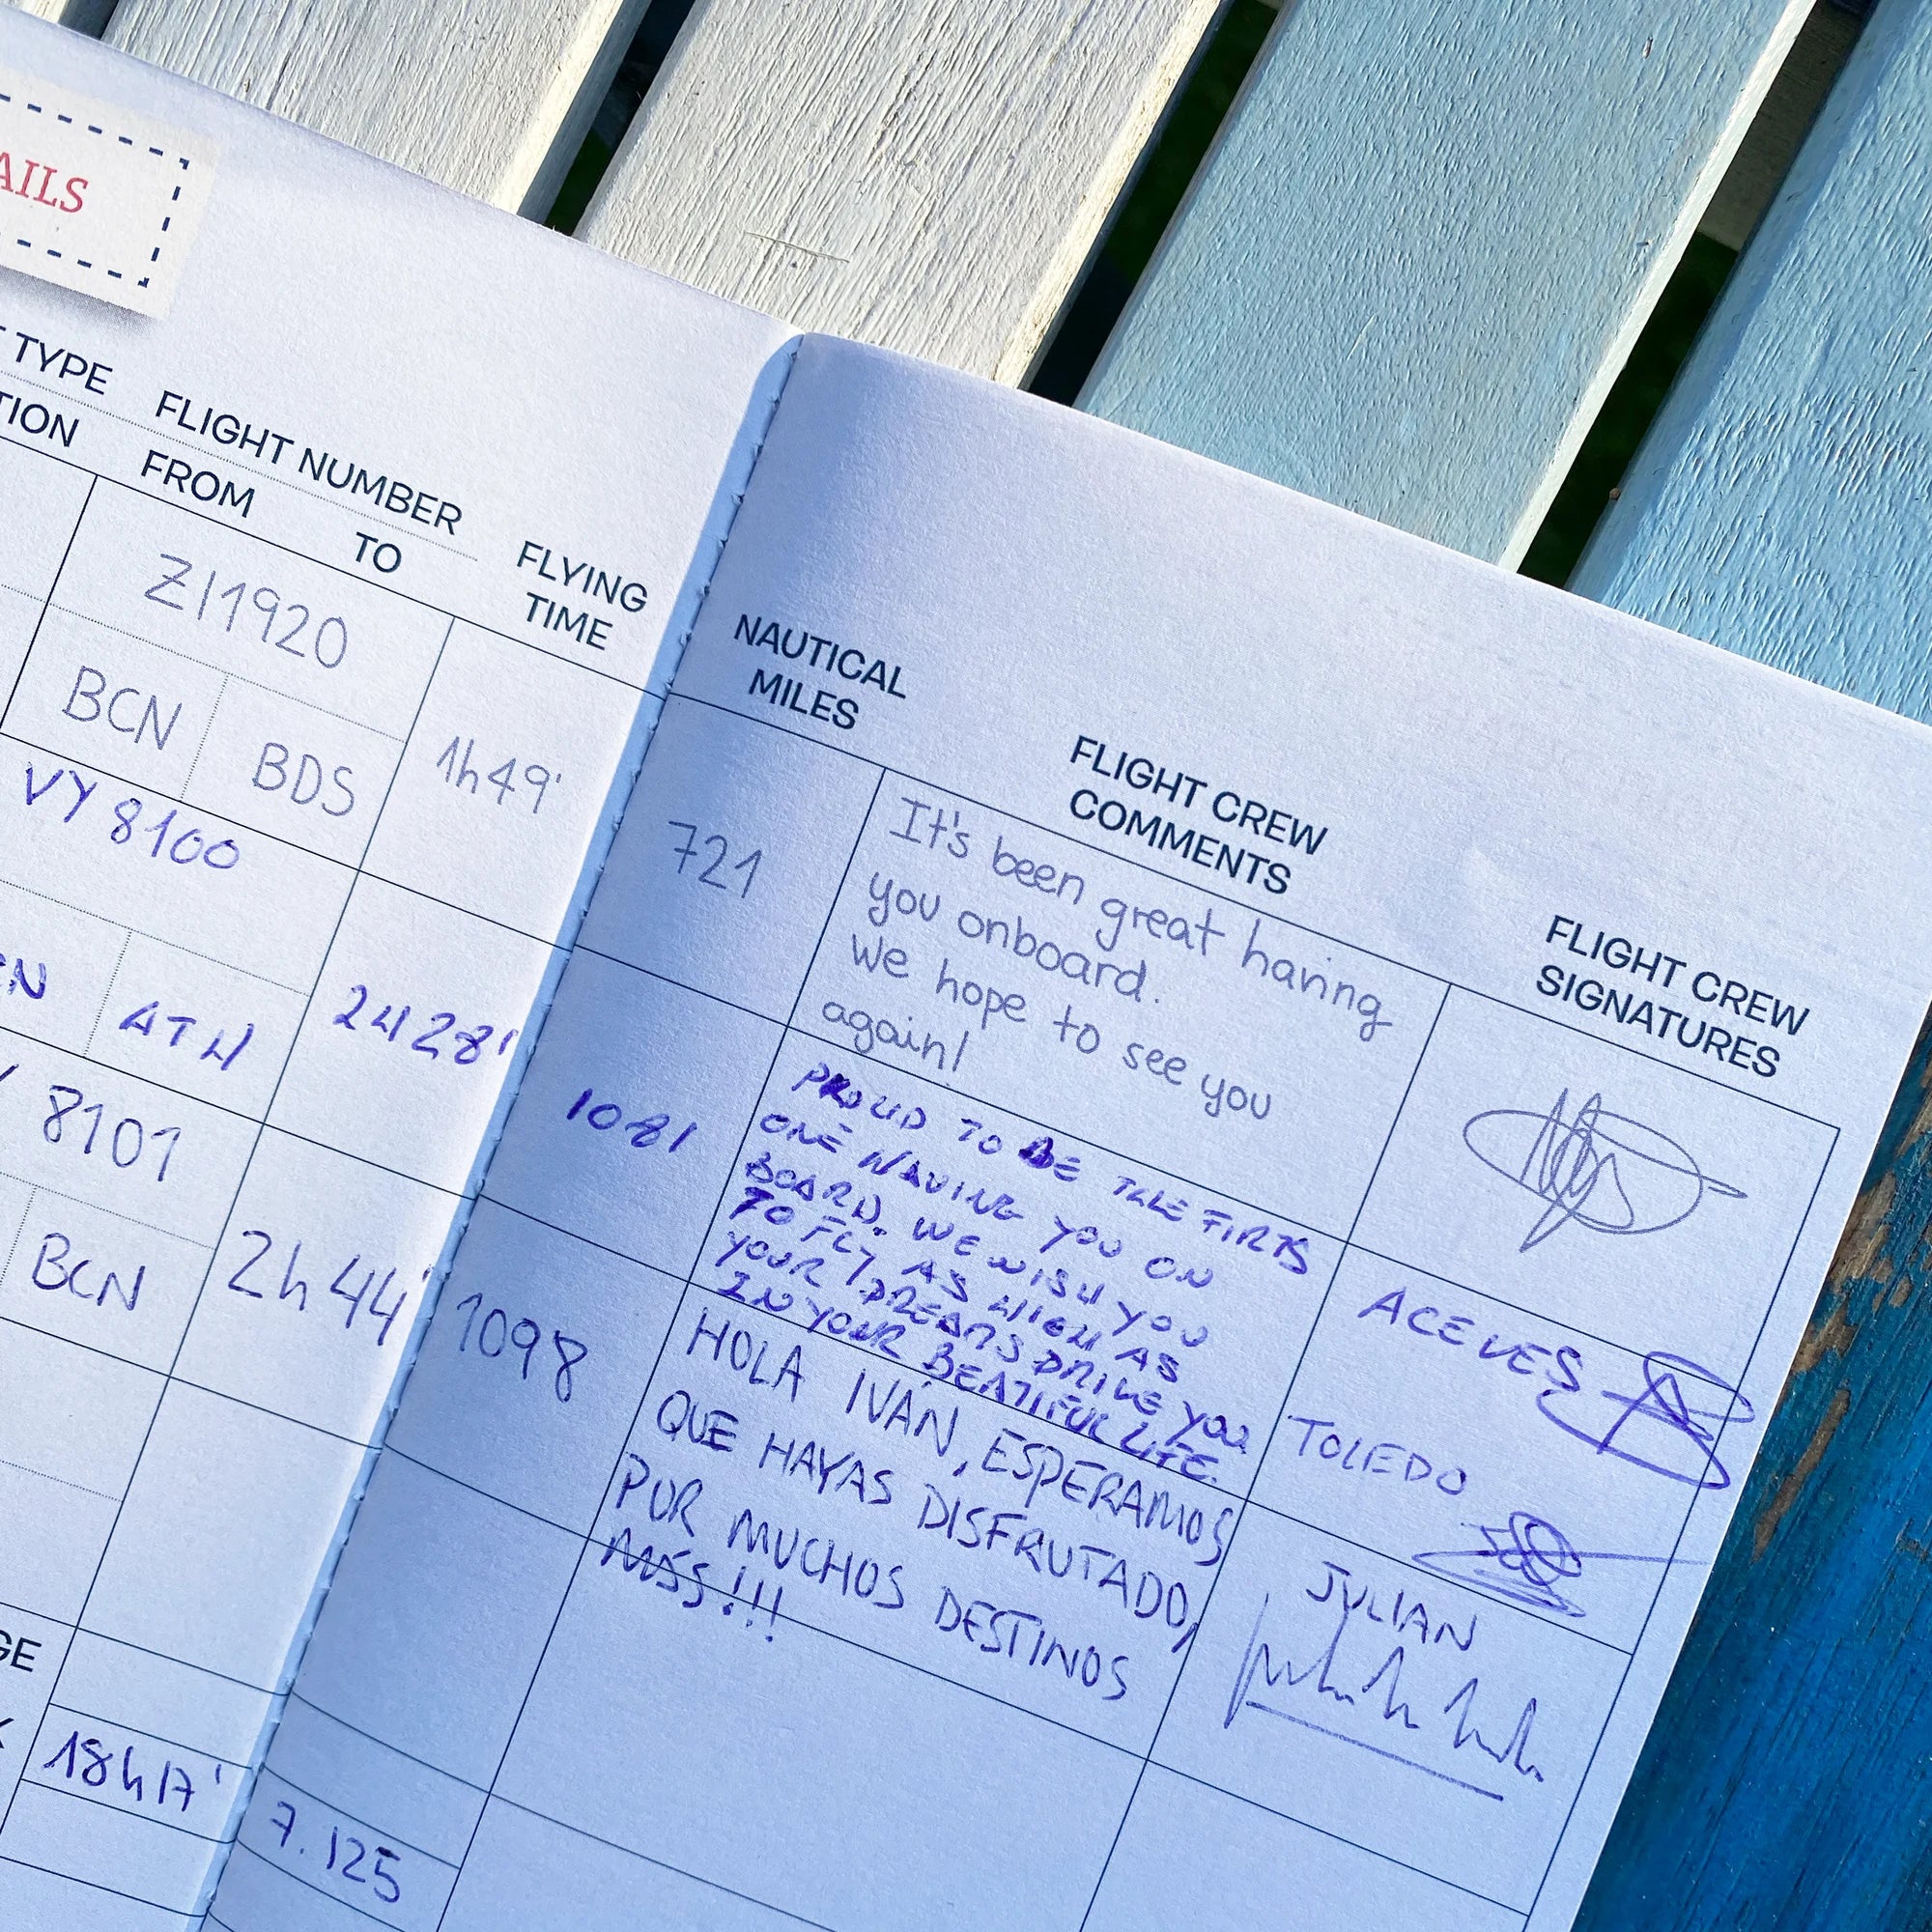 AILS
TYPE
TION
FLIGHT NUMBER
FROM TO
FLYING
TIME
NAUTICAL
MILES
FLIGHT CREW
COMMENTS
FLIGHT CREW
SIGNATURES
ZI1920
BCN BDS
1h49'
721
It's been great having
you onboard.
We hope to see you
again!
VY 8100
CN ATH
2H28'
1081
PROUD TO BE THE FIRTS
ONE HAVING YOU ON
BOARD. WE WISH YOU
TO FLY AS HIGH AS
YOUR DREAMS DRIVE YOU
IN YOUR BEATIFUL LIFE.
ACEVES
TOLEDO
Y 8101
BCN
2h44'
1098
HOLA IVÁN, ESPERAMOS
QUE HAYAS DISFRUTADO,
POR MUCHOS DESTINOS
MÁS!!!
JULIAN
GE
18h17'
7.125